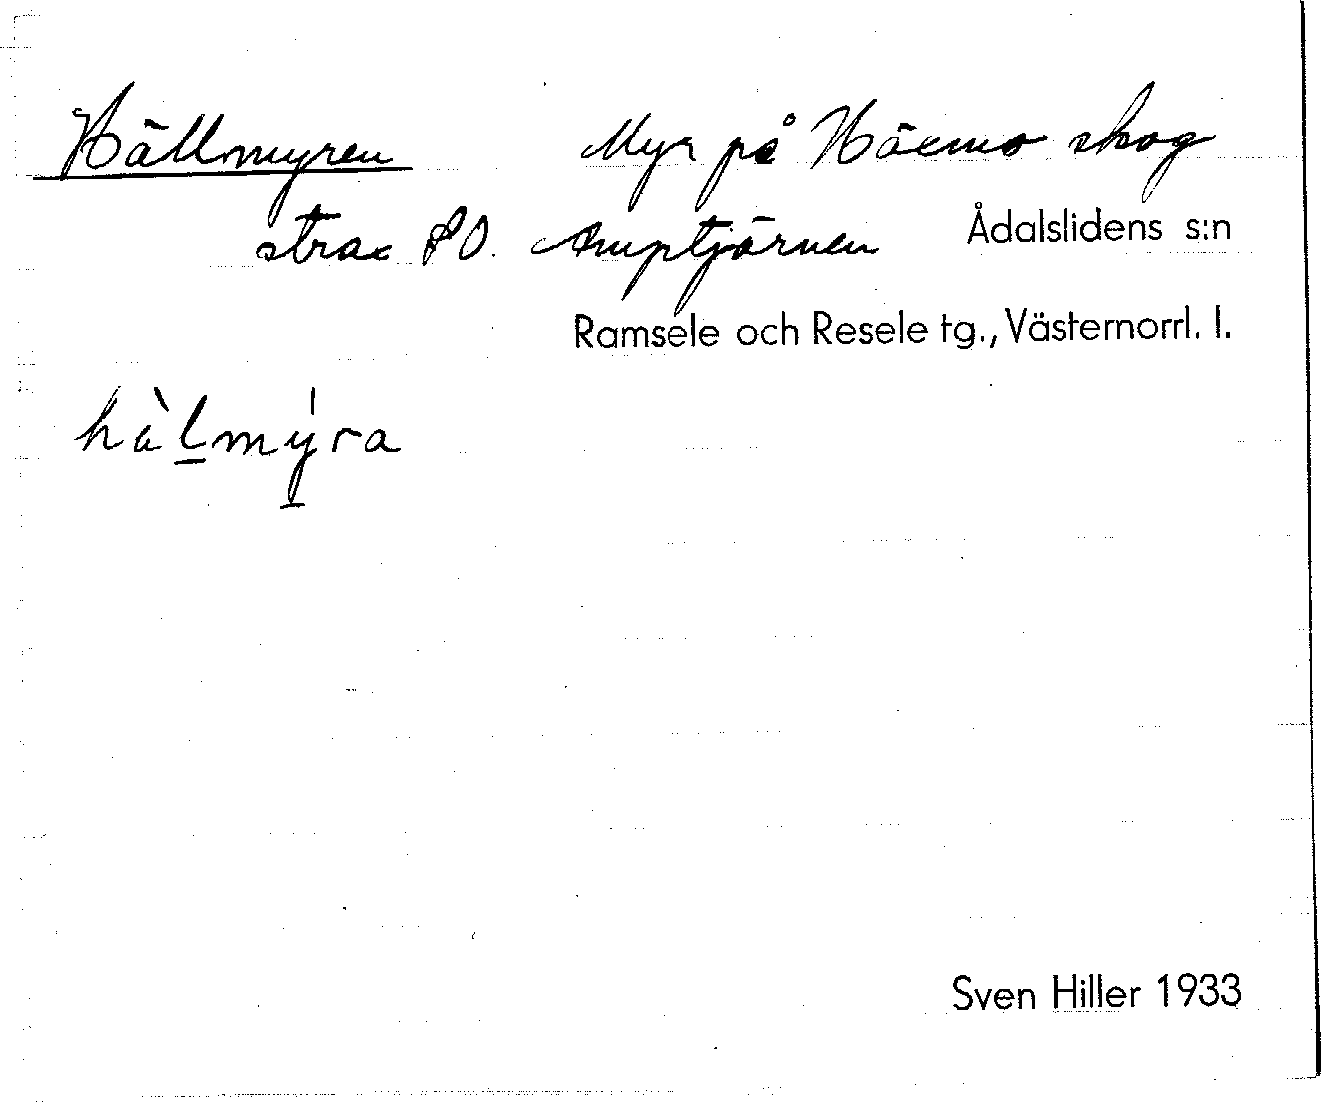 Hällmyren Myr på Häxmo skog
strax SO. Amptjärnen Ådalslidens s:n
Ramsele och Resele tg., Västernorrl. l.
hàlmýra
Sven Hiller 1933